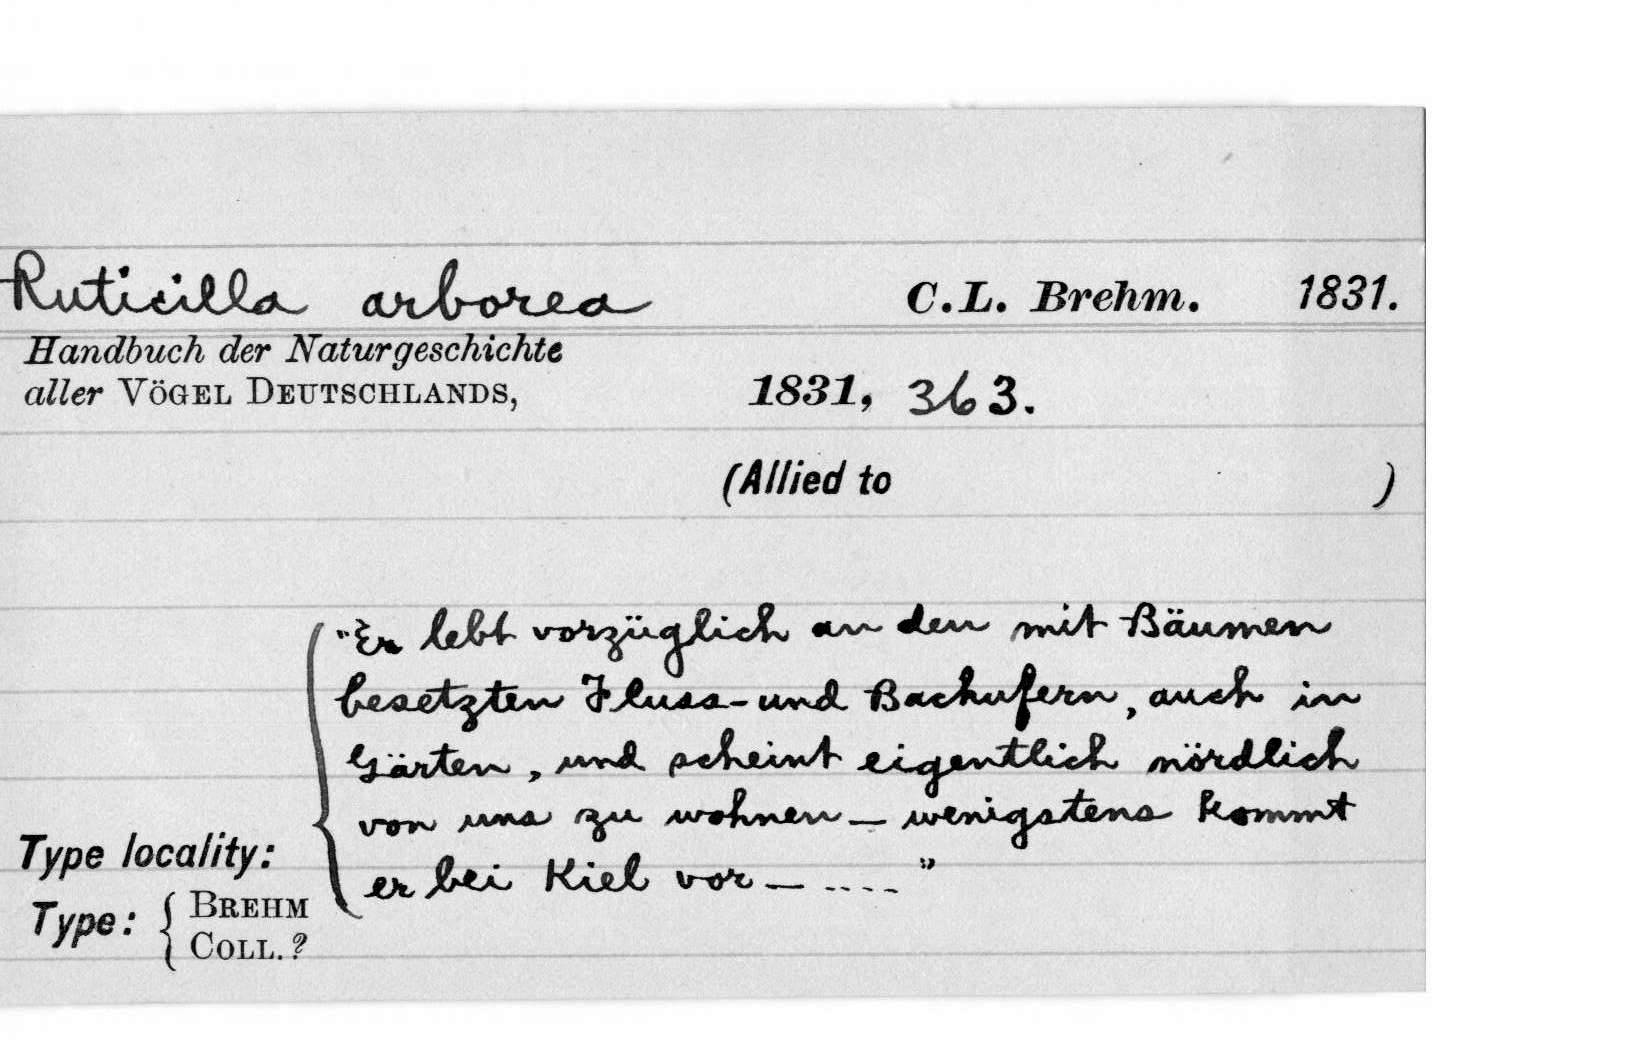 Ruticilla arborea C.L. Brehm. 1831.
Handbuch der Naturgeschichte
aller Vögel Deutschlands, 1831, 363.
(Allied to )
"Er lebt vorzüglich an den mit Bäumen
besetzten Fluss-und Bachufern, auch in
Gärten, und scheint eigentlich nördlich
von uns zu wohnen — wenigstens kommt
er bei Kiel vor — ...."
Type locality:
Type: { Brehm
Coll.?